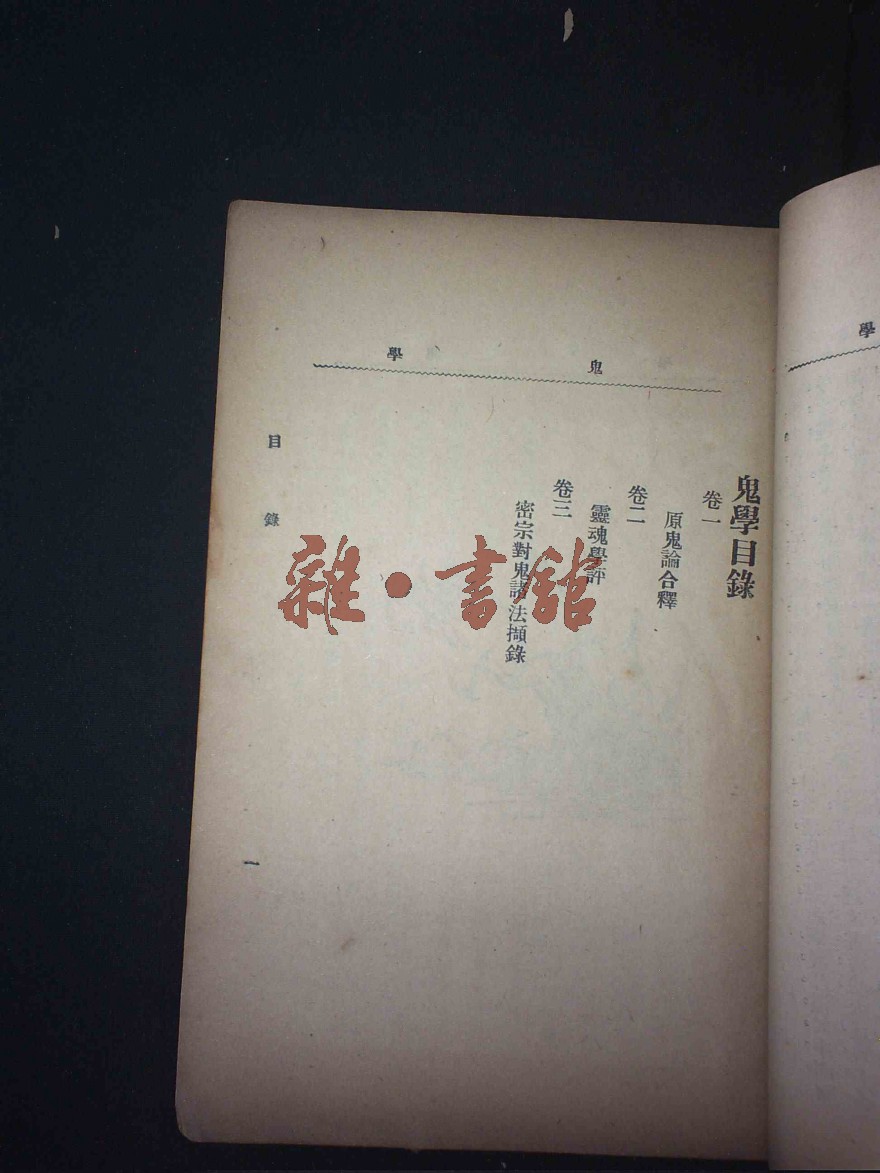 鬼學
鬼學目錄
卷一
原鬼論合釋
卷二
靈魂學評
卷三
密宗對鬼諸法擷錄
目錄
一
雜·書館
學